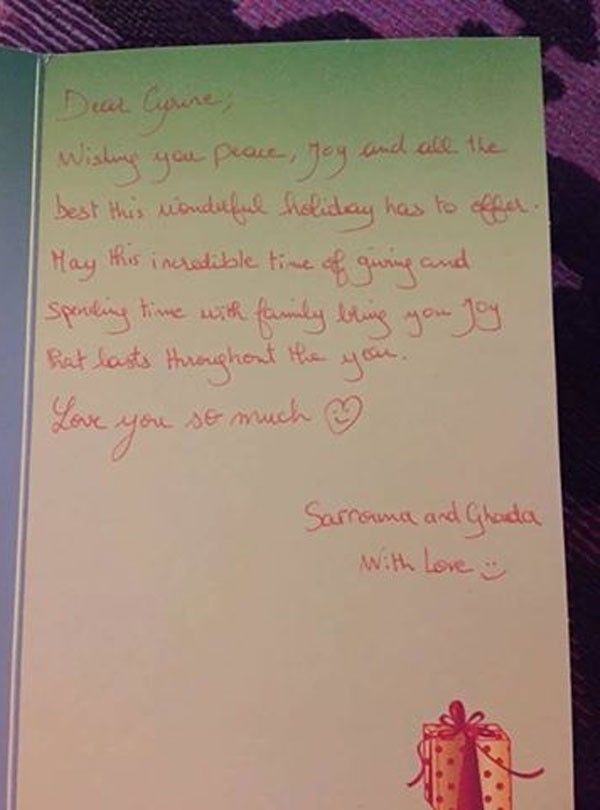 Dear Cyrine;
Wishing you peace, Joy and all the
best this wonderful holiday has to offer.
May this incredible time of giving and
spending time with family bring you Joy
that lasts throughout the year.
Love you so much
Sarrouna and Ghaida
With Love